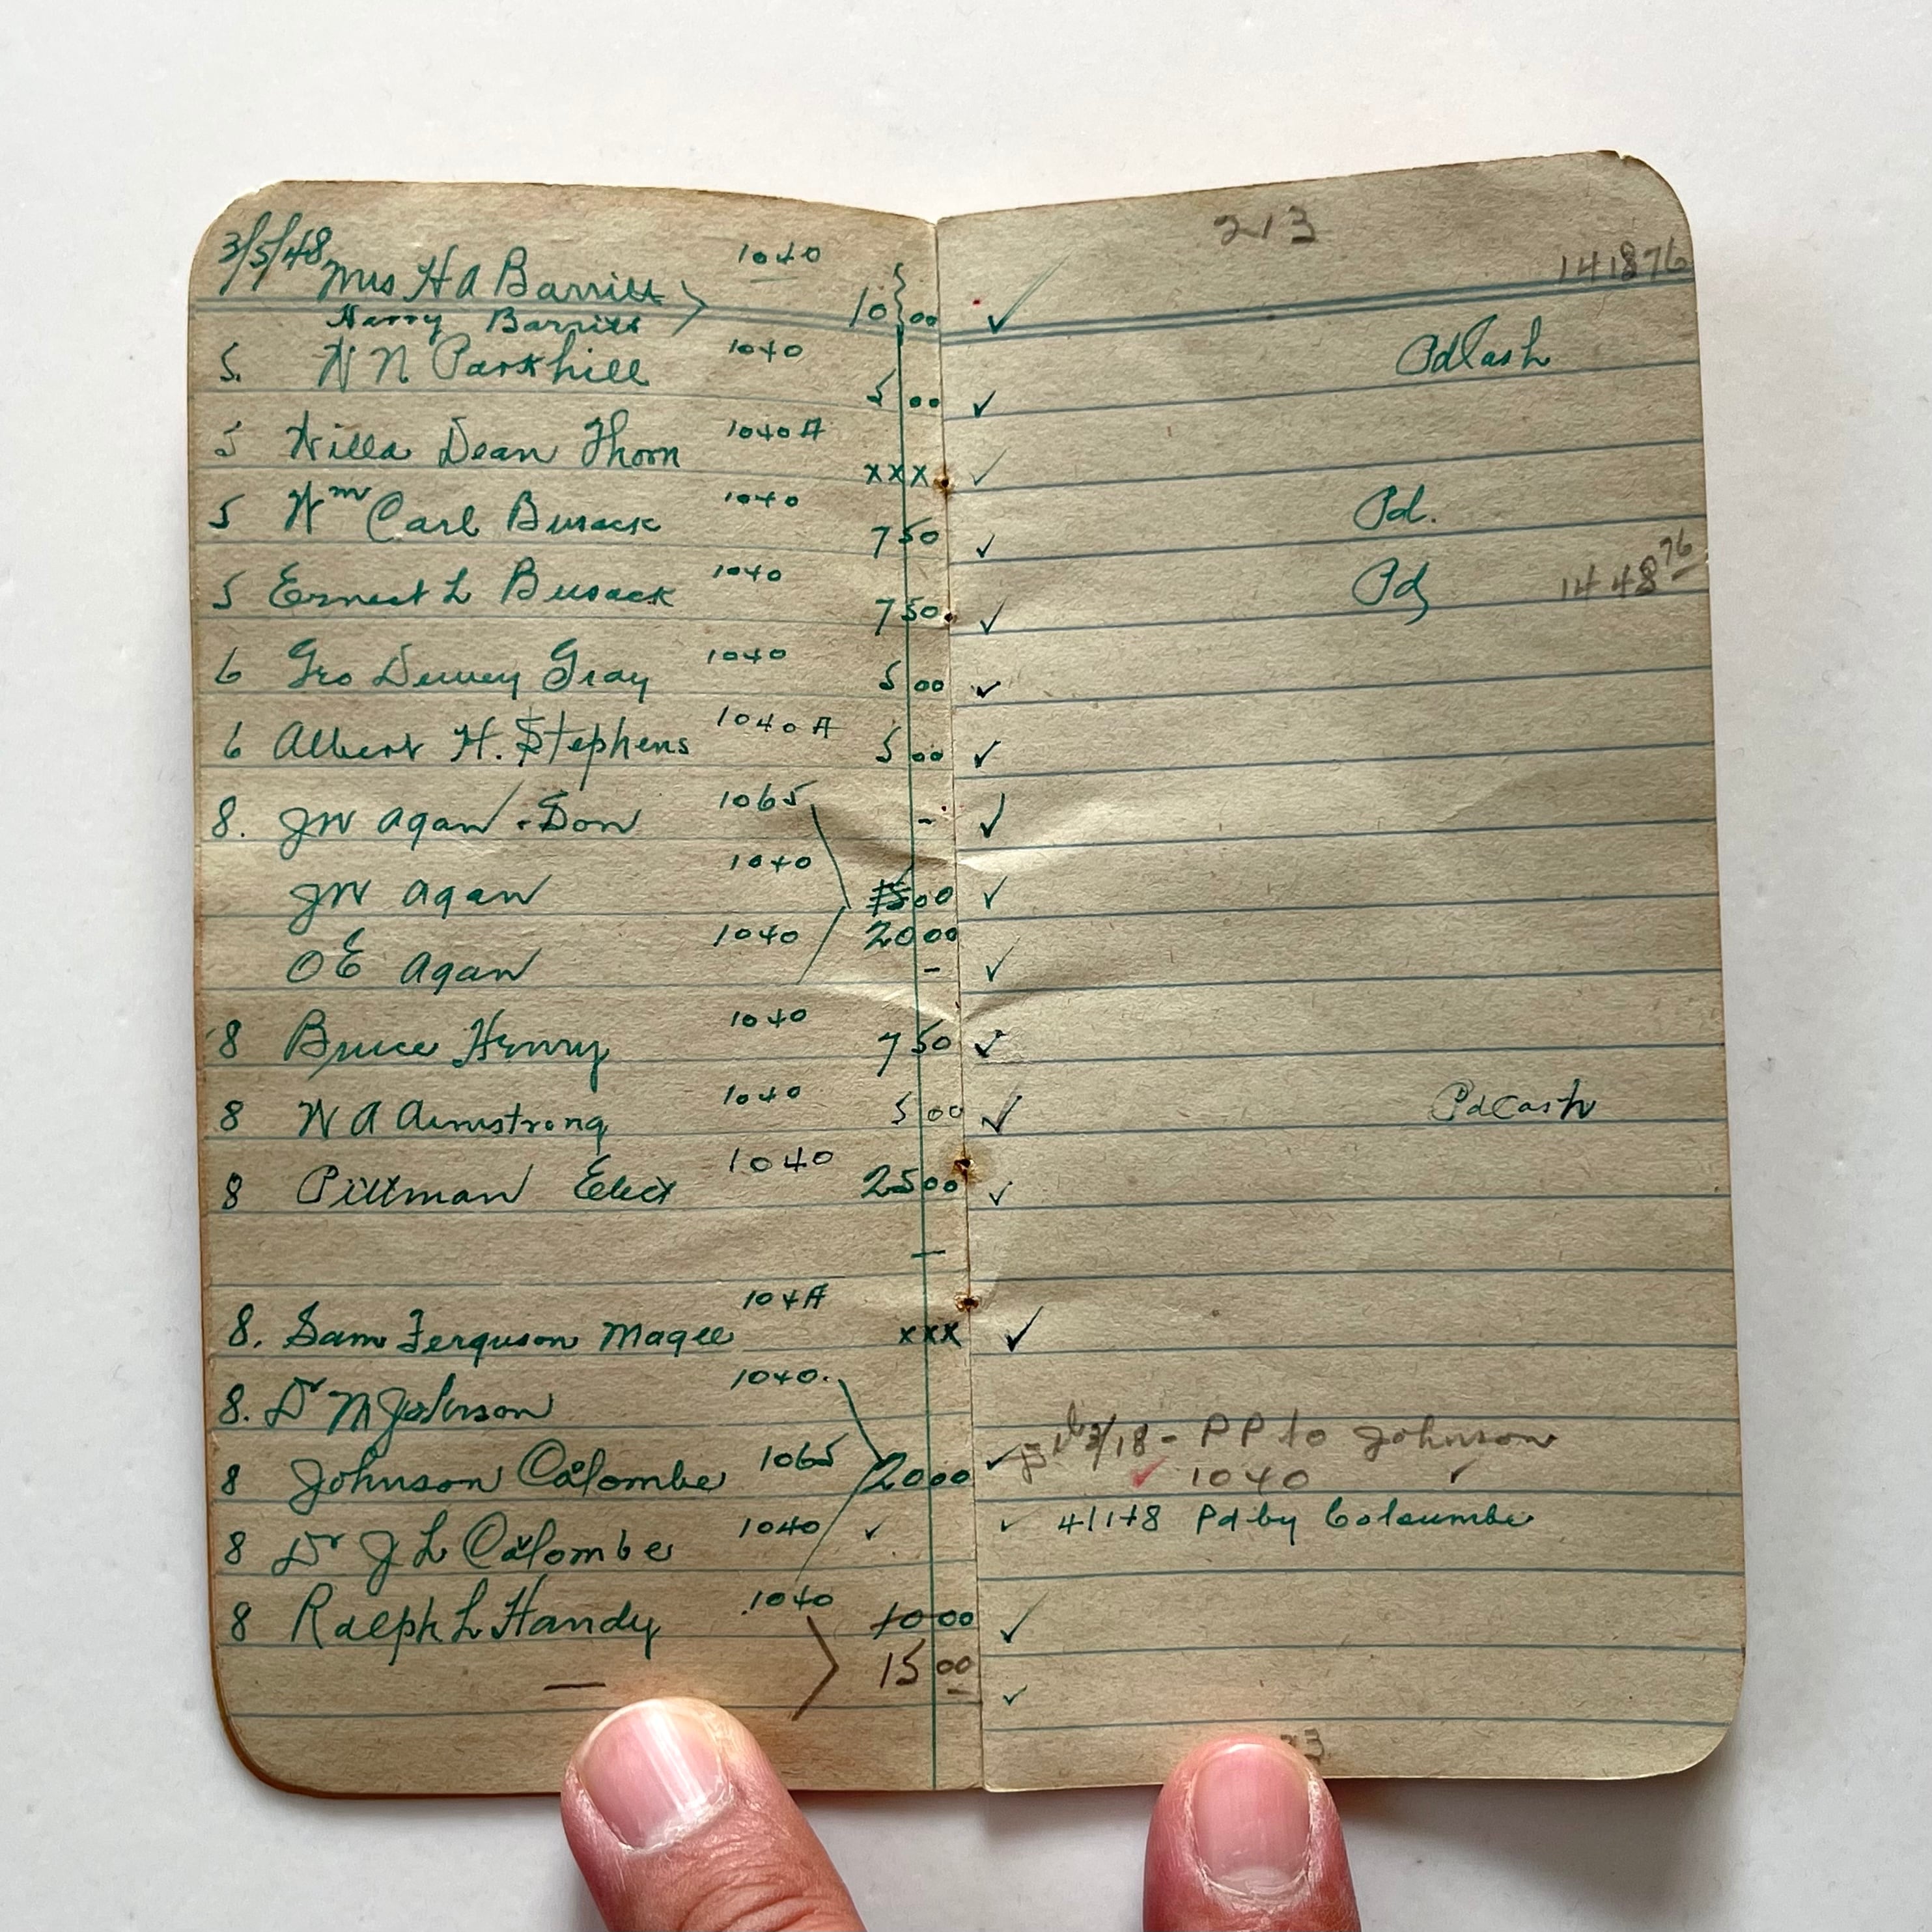 3/5/48 Mrs H A Barritt 1040 10 00 ✓
213
141876
Harry Barritt
5. W N Parkhill 1040 5 00 ✓ Pd Cash
5 Willa Dean Thorn 1040A xxx ✓
5 Wm Carl Busack 1040 7 50 ✓ Pd.
5 Ernest L Busack 1040 7 50 ✓ Pd 1448 76
6 Geo Dewey Gray 1040 5 00 ✓
6 Albert H. Stephens 1040A 5 00 ✓
8. JW Agan & Son 1065 - ✓
JW Agan 1040 15 00 ✓
20 00
OE Agan 1040 - ✓
8 Bruce Henry 1040 7 50 ✓
8 W A Armstrong 1040 5 00 ✓ Pd Cash
8 Pittman Elect 1040 25 00 ✓
—
8. Sam Ferguson Magee 104A xxx ✓
8. Dr M Johnson 1040.
3/18 - PP to Johnson
8 Johnson Colombe 1065 20 00 ✓ ✓ 1040 ✓
8 Dr J L Colombe 1040 ✓ ✓ 4/1/48 Pd by Coloumbe
8 Ralph L Handy 1040 10 00 ✓
— 15 00 ✓